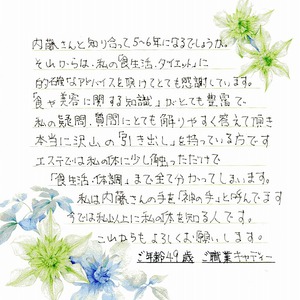 内藤さんと知り合って5〜6年になるでしょうか。
それからは、私の「食生活、ダイエット」に
的確なアドバイスを頂けてとても感謝しています。
「食や美容に関する知識」がとても豊富で
私の疑問、質問にとても解りやすく答えて頂き
本当に沢山の「引き出し」を持っている方です
エステでは私の体に少し触っただけで
「食生活・体調」まで全て分かってしまいます。
私は内藤さんの手を「神の手」と呼んでます
今では私以上に私の体を知る人です。
これからもよろしくお願いします。
ご年齢49歳 ご職業キャディー